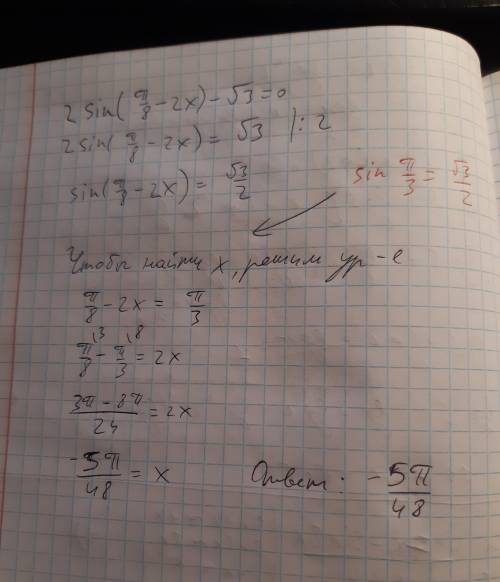 2 sin(π/8 - 2x) - √3 = 0
2 sin(π/8 - 2x) = √3 |: 2
sin(π/8 - 2x) = √3/2
sin π/3 = √3/2
Чтобы найти x, решим ур-е
π/8 - 2x = π/3
π/8 \3 - π/3 \8 = 2x
3π - 8π/24 = 2x
-5π/48 = x
Ответ: -5π/48